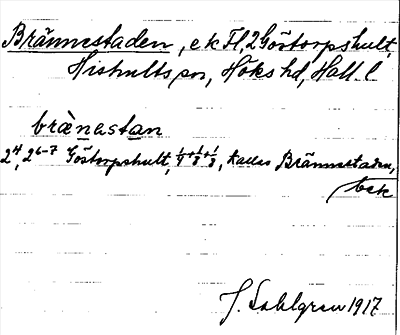 Brännestaden, ek Fl, 2 Göstorpshult,
Hishults sn, Höks hd, Hall. l
brànestan
2⁴, 2⁶⁻⁷ Göstorpshult, ¼+⅛+⅛, kallas Brännestaden,
J. Sahlgren 1917